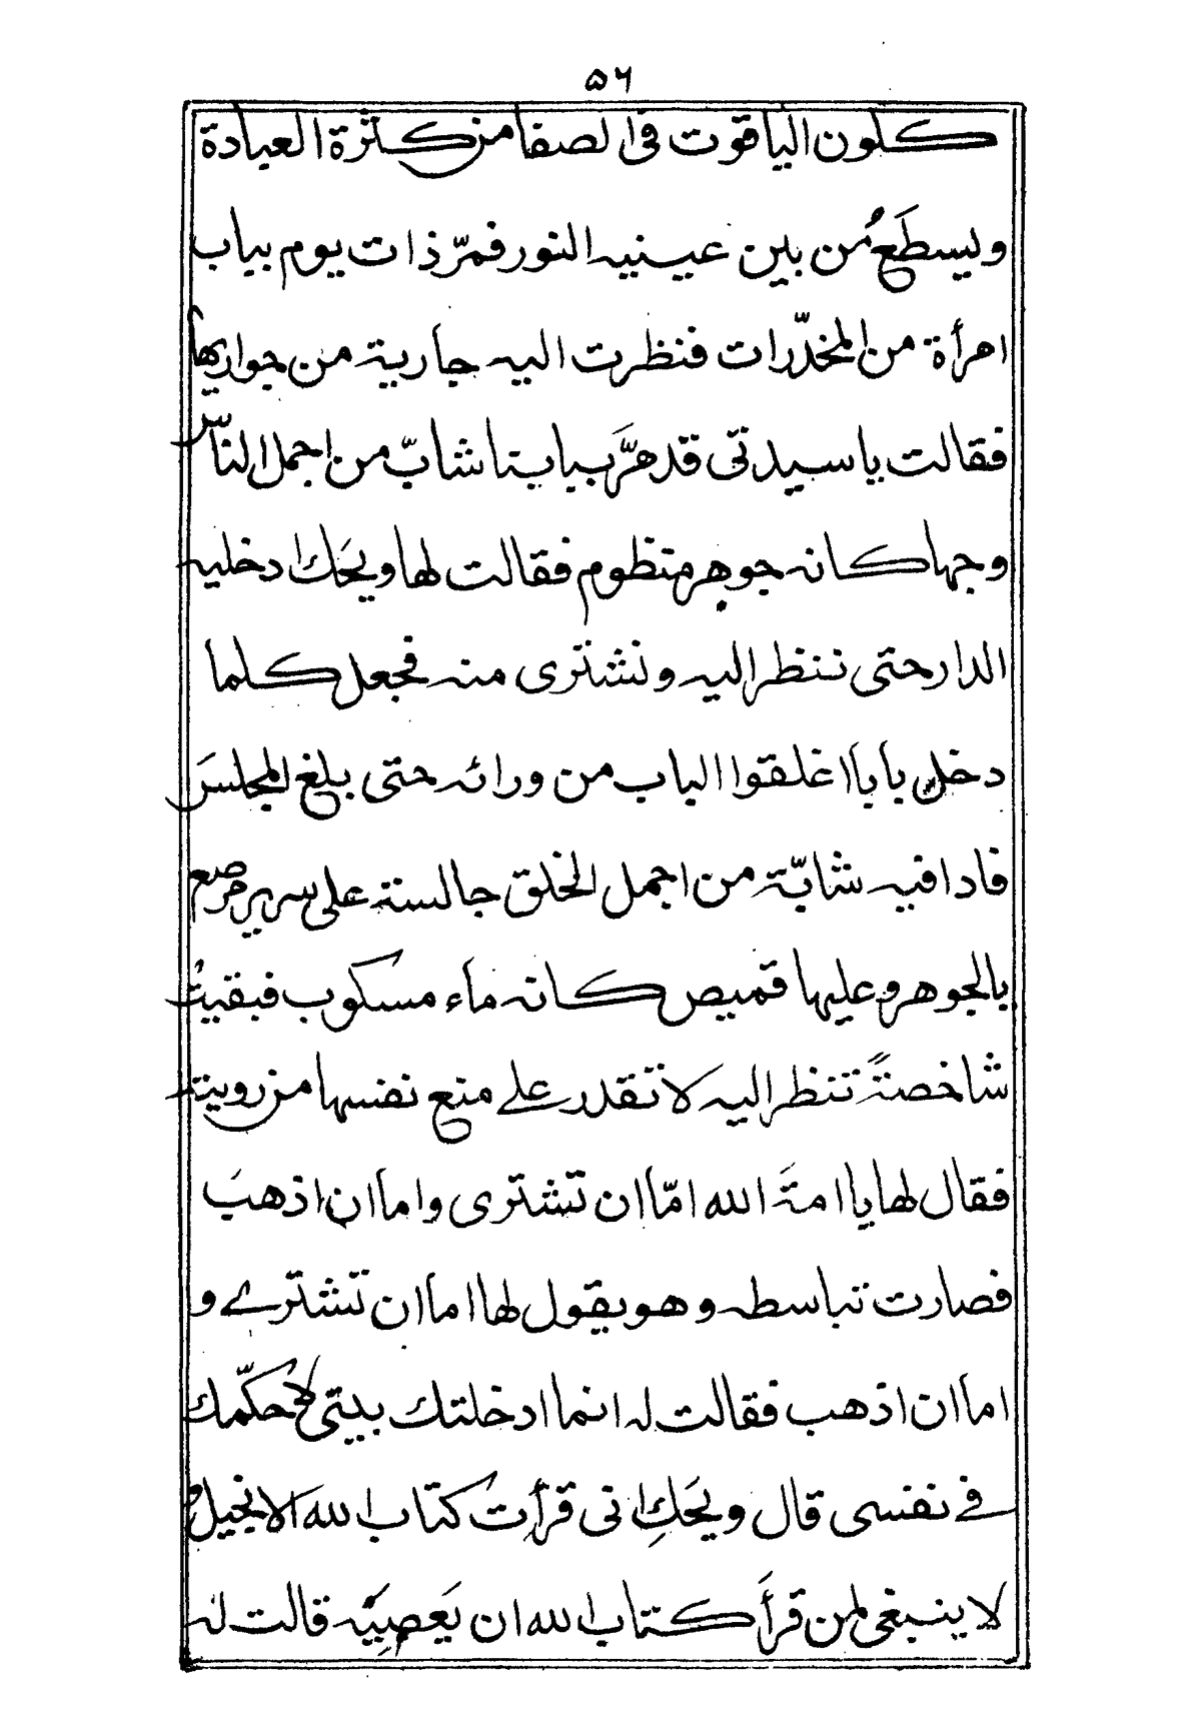 ۵۶
كلون الياقوت فى الصفا من كثرة العبادة
ويسطَعُ من بين عينيه النور فمرّ ذات يوم بباب
امرأة من المخدّرات فنظرت اليه جارية من جواريها
فقالت يا سيدتى قد مرَّ ببابنا شابّ من اجمل النّاس
وجها كانه جوهر منظوم فقالت لها ويحَك ادخليه
الدار حتى ننظر اليه ونشترى منه فجعل كلما
دخل بابا اغلقوا الباب من ورائه حتى بلغ المجلسَ
فاذا فيه شابّة من اجمل الخلق جالسة على سرير مرصع
بالجوهر وعليها قميص كانه ماء مسكوب فبقيتْ
شاخصةً تنظر اليه لا تقدر على منع نفسها من رويته
فقال لها يا امةَ الله امّا ان تشترى واما ان اذهبَ
فصارت تباسطه وهو يقول لها اما ان تشترے و
اما ان اذهب فقالت له انما ادخلتك بيتى لاُحكّمك
فے نفسى قال ويحَكِ انى قرأت كتاب الله الانجيل و
لا ينبغى لمن قرأَ كتاب الله ان يَعصِيَه قالت له